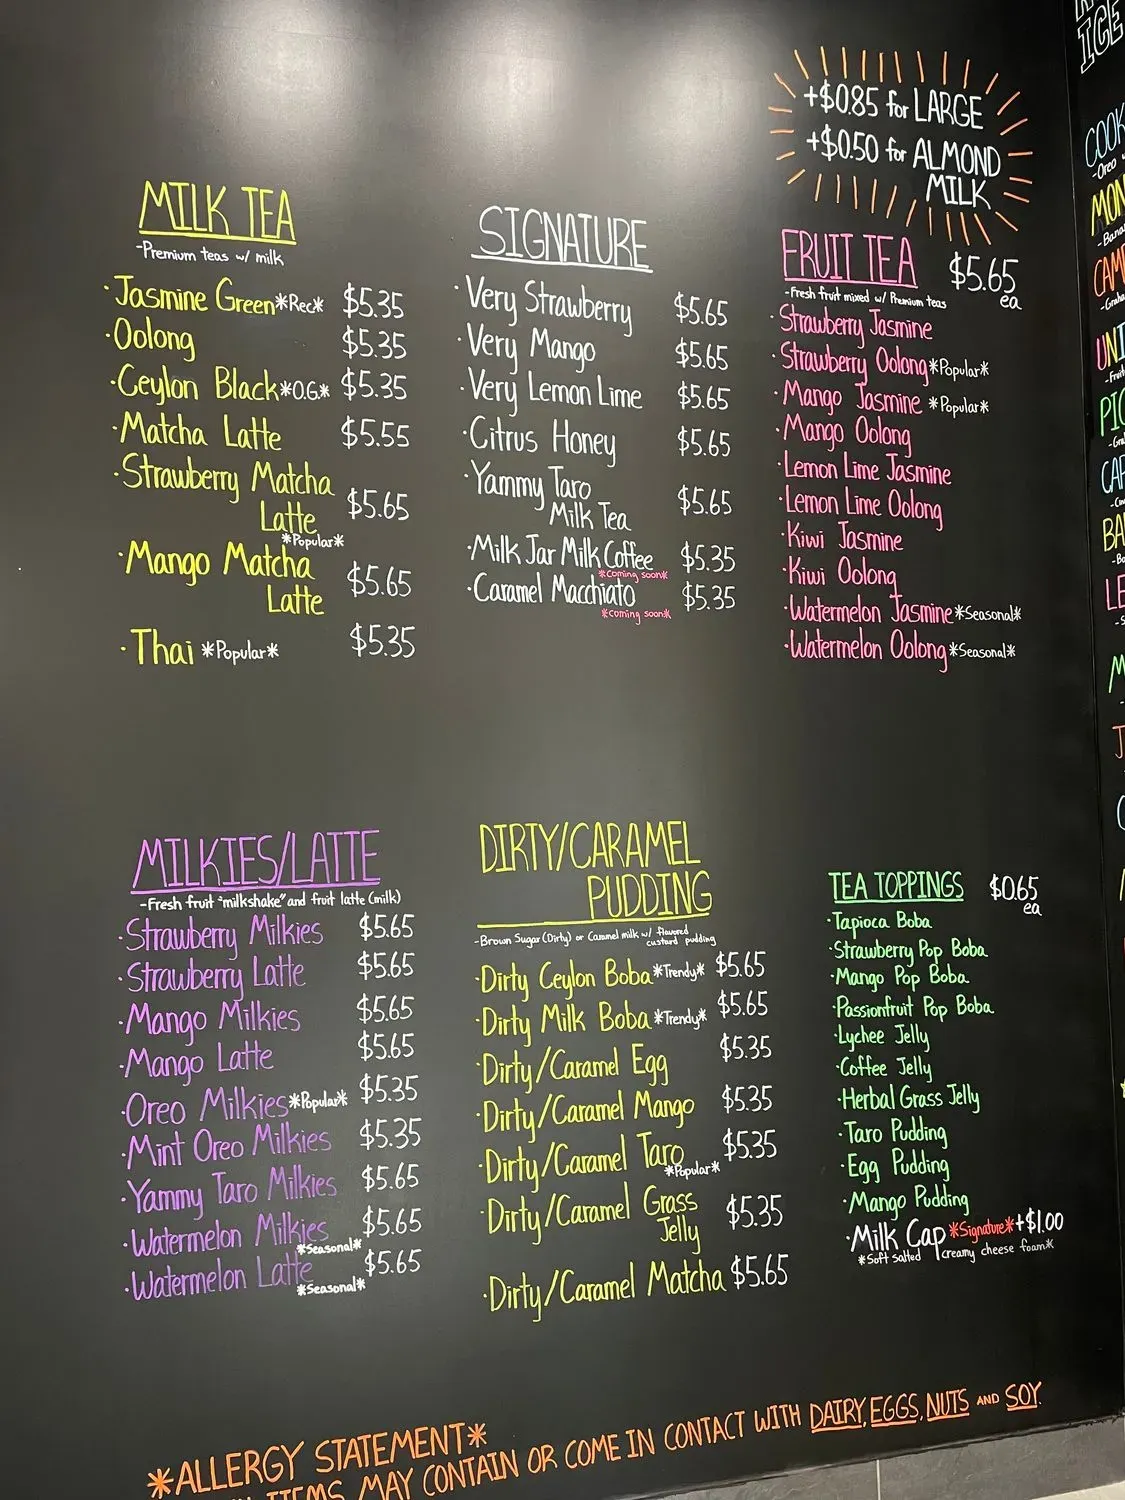 +$0.85 for LARGE
+$0.50 for ALMOND
MILK
MILK TEA
-Premium teas w/ milk
·Jasmine Green *Rec* $5.35
·Oolong $5.35
·Ceylon Black *O.G.* $5.35
·Matcha Latte $5.55
·Strawberry Matcha
Latte $5.65
*Popular*
·Mango Matcha
Latte $5.65
·Thai *Popular* $5.35
SIGNATURE
·Very Strawberry $5.65
·Very Mango $5.65
·Very Lemon Lime $5.65
·Citrus Honey $5.65
·Yammy Taro
Milk Tea $5.65
·Milk Jar Milk Coffee $5.35
*Coming soon*
·Caramel Macchiato $5.35
*Coming soon*
FRUIT TEA $5.65
ea
-Fresh fruit mixed w/ Premium teas
·Strawberry Jasmine
·Strawberry Oolong *Popular*
·Mango Jasmine *Popular*
·Mango Oolong
·Lemon Lime Jasmine
·Lemon Lime Oolong
·Kiwi Jasmine
·Kiwi Oolong
·Watermelon Jasmine *Seasonal*
·Watermelon Oolong *Seasonal*
MILKIES/LATTE
-Fresh fruit "milkshake" and fruit latte (milk)
·Strawberry Milkies $5.65
·Strawberry Latte $5.65
·Mango Milkies $5.65
·Mango Latte $5.65
·Oreo Milkies *Popular* $5.35
·Mint Oreo Milkies $5.35
·Yammy Taro Milkies $5.65
·Watermelon Milkies $5.65
*Seasonal*
·Watermelon Latte $5.65
*Seasonal*
DIRTY/CARAMEL
PUDDING
-Brown Sugar (Dirty) or Caramel milk w/ flavored
custard pudding
·Dirty Ceylon Boba *Trendy* $5.65
·Dirty Milk Boba *Trendy* $5.65
·Dirty/Caramel Egg $5.35
·Dirty/Caramel Mango $5.35
·Dirty/Caramel Taro $5.35
*Popular*
·Dirty/Caramel Grass
Jelly $5.35
·Dirty/Caramel Matcha $5.65
TEA TOPPINGS $0.65
ea
·Tapioca Boba
·Strawberry Pop Boba
·Mango Pop Boba
·Passionfruit Pop Boba
·Lychee Jelly
·Coffee Jelly
·Herbal Grass Jelly
·Taro Pudding
·Egg Pudding
·Mango Pudding
·Milk Cap *Signature* +$1.00
*Soft salted creamy cheese foam*
*ALLERGY STATEMENT*
ITEMS MAY CONTAIN OR COME IN CONTACT WITH DAIRY, EGGS, NUTS AND SOY.
ICE